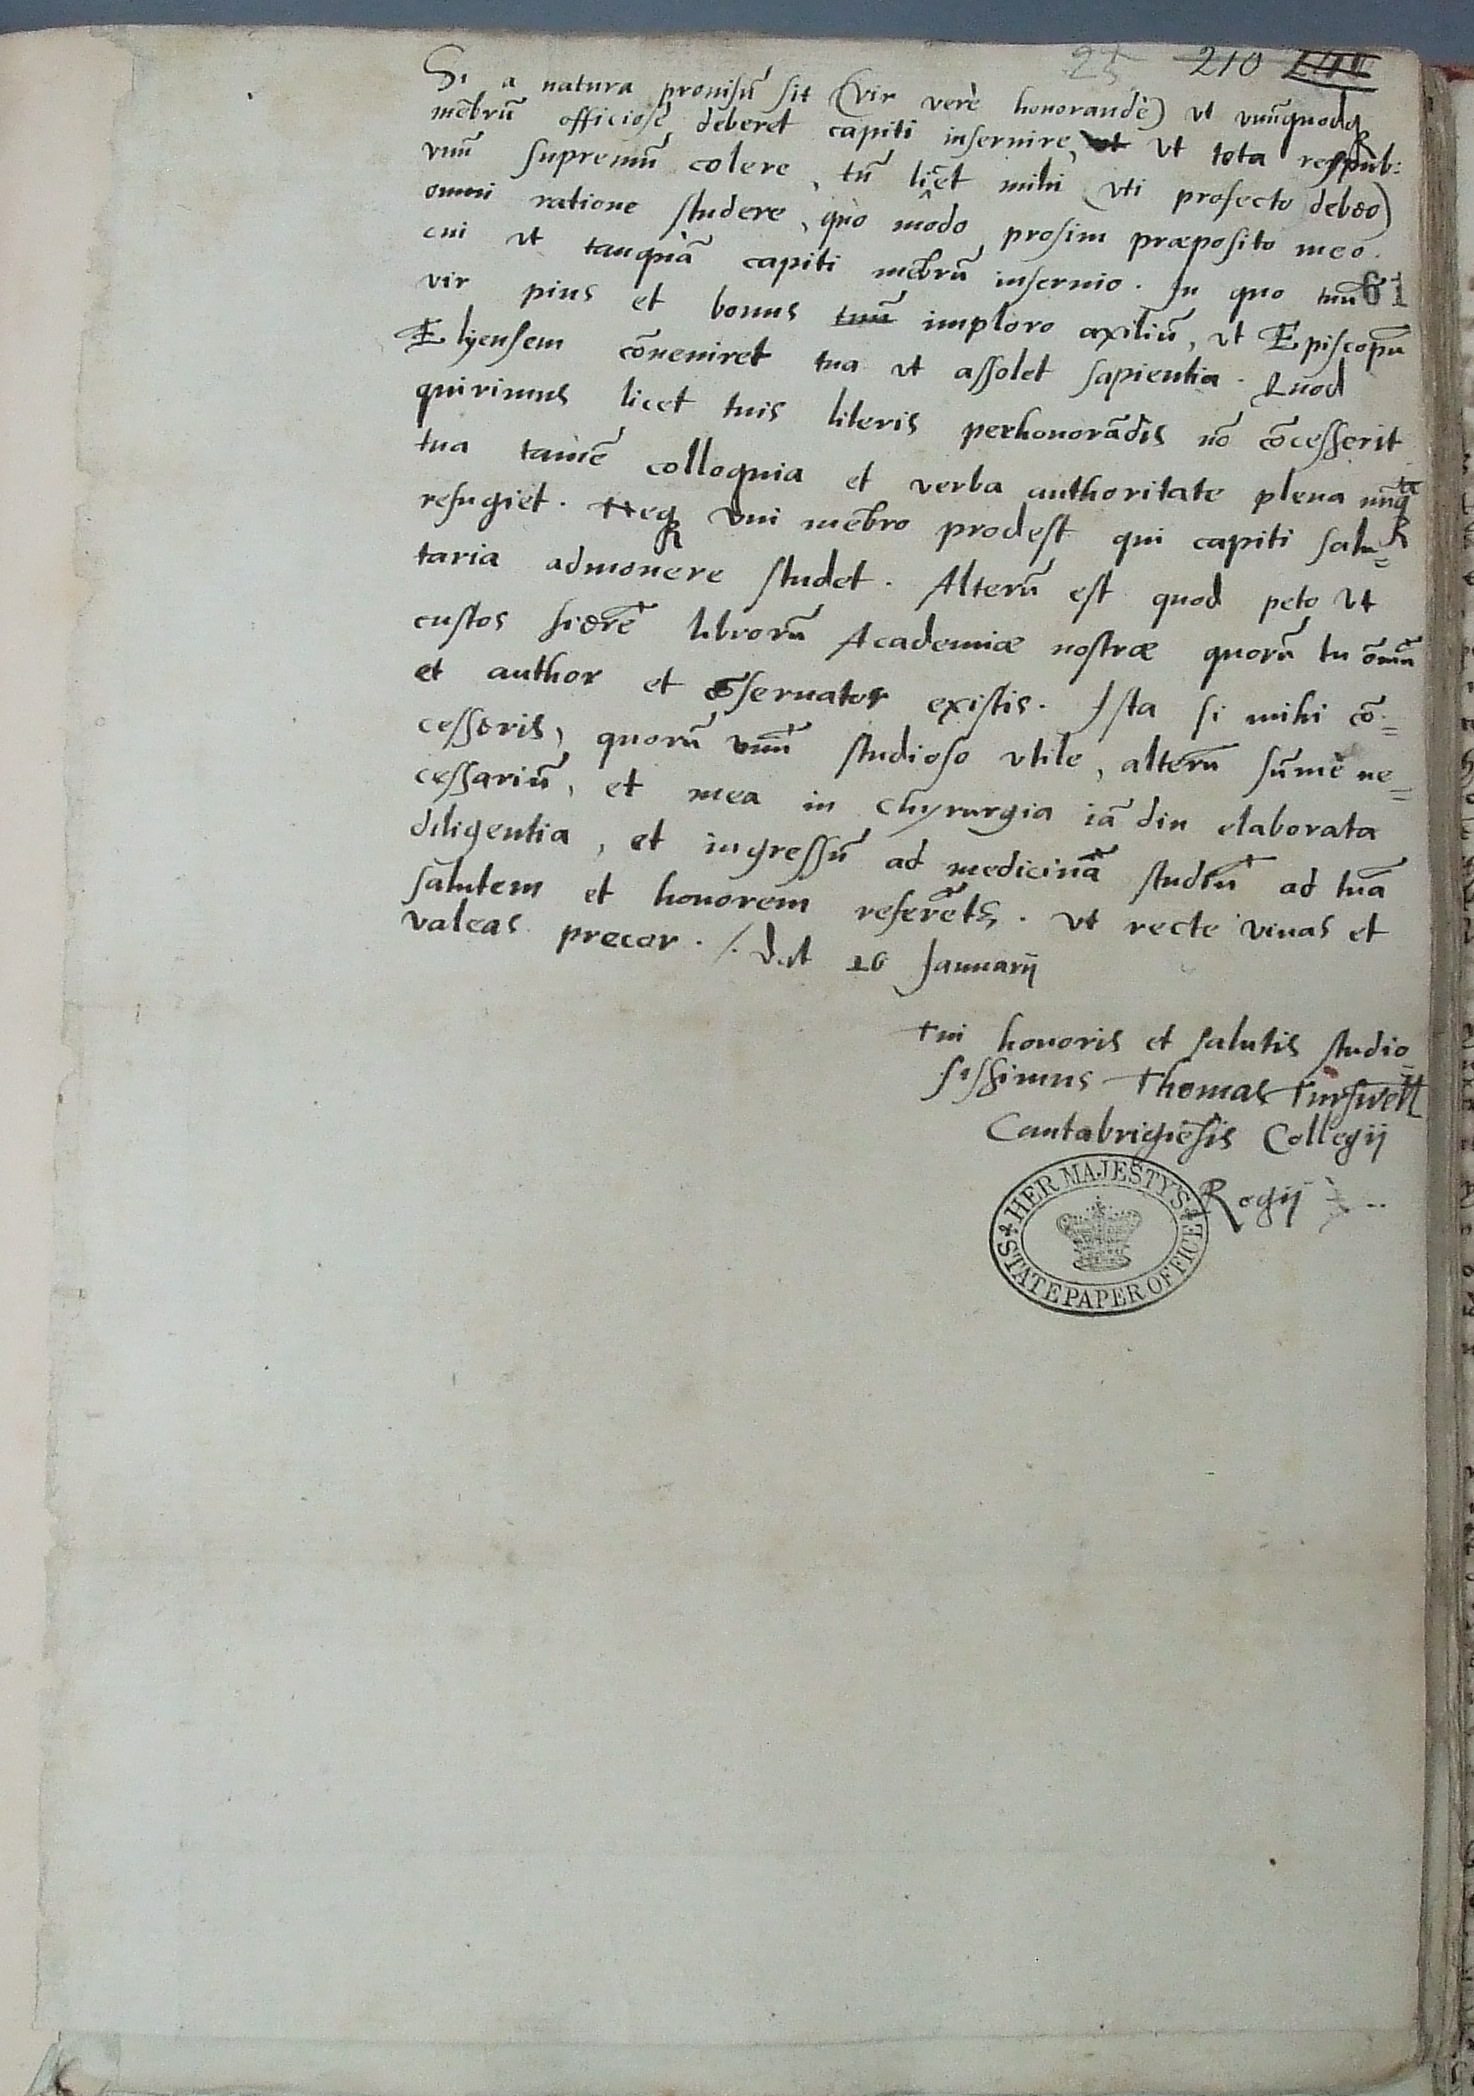 25 210
Si a natura provisũ sit (vir verè honorandè) vt vnũquodq
mẽbrũ officiosè deberet capiti inservire, ut vt tota respub:
vnũ supremũ colere, tũ licet mihi (vti profecto debeo)
omni ratione studere, quo modo prosim præposito meo.
cui vt tanquã capiti mẽbrũ inservio. In quo tuũ
61
vir pius et bonus tuũ imploro axiliũ, vt Episcopũ
Elyensem cõveniret tua vt assolet sapientia. Quod
quirimus licet tuis literis perhonorãdis nõ cõcesserit
tua tamẽ colloquia et verba authoritate plena nũq
refugiet. Neq vni mẽbro prodest qui capiti salu=
taria admonere studet. Alterũ est quod peto vt
custos fierẽ librorũ Academiæ nostræ quorũ tu õmiũ
et author et cõservator existis. Ista si mihi cõ=
cesseris, quorũ vnũ studioso vtile, alterũ sũmè ne=
cessariũ, et mea in chyrurgia iã diu elaborata
diligentia, et ingressũ ad medicinã studiũ ad tuã
salutem et honorem referẽts. vt recte vivas et
valeas precor. /. dat 16 Januarij
tui honoris et salutis studio=
sissimus Thomas Turswell
Cantabrigiẽsis Collegij
Regij
HER MAJESTY'S
STATE PAPER OFFICE